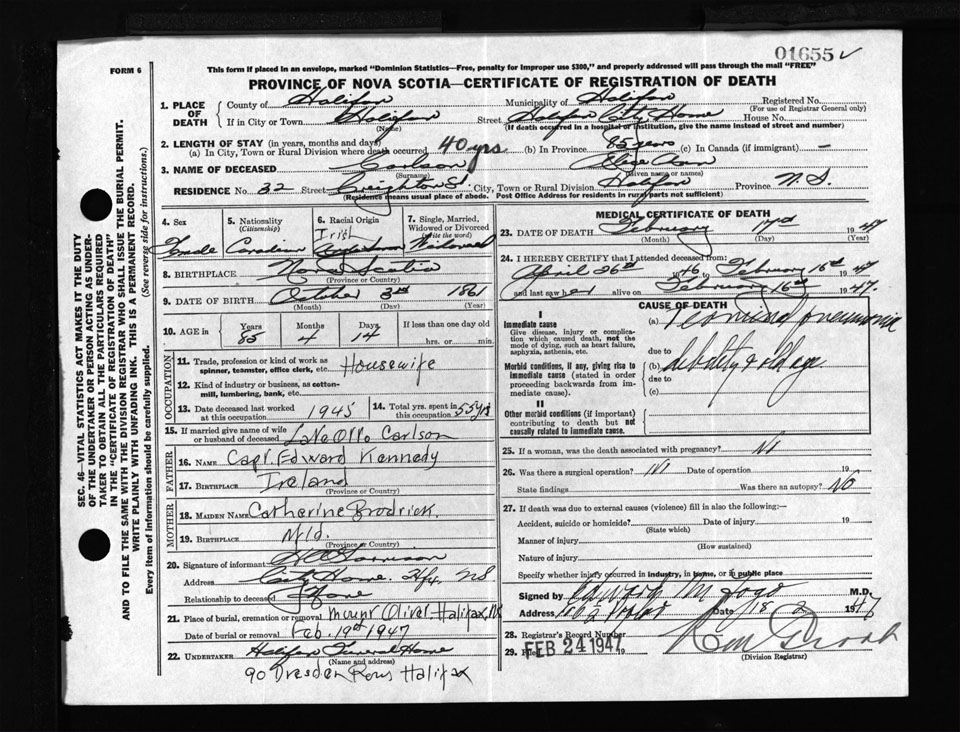 01655 ✓
FORM 6
This form if placed in an envelope, marked "Dominion Statistics—Free, penalty for improper use $300," and properly addressed will pass through the mail "FREE"
PROVINCE OF NOVA SCOTIA—CERTIFICATE OF REGISTRATION OF DEATH
SEC. 46—VITAL STATISTICS ACT MAKES IT THE DUTY
OF THE UNDERTAKER OR PERSON ACTING AS UNDER-
TAKER TO OBTAIN ALL THE PARTICULARS REQUIRED
IN THE "CERTIFICATE OF REGISTRATION OF DEATH"
AND TO FILE THE SAME WITH THE DIVISION REGISTRAR WHO SHALL ISSUE THE BURIAL PERMIT.
WRITE PLAINLY WITH UNFADING INK. THIS IS A PERMANENT RECORD.
Every item of information should be carefully supplied. (See reverse side for instructions.)
1. PLACE OF DEATH
County of Halifax Municipality of Halifax Registered No.
(For use of Registrar General only)
If in City or Town Halifax Street Halifax City Home House No.
(Name) (If death occurred in a hospital or institution, give the name instead of street and number)
2. LENGTH OF STAY (in years, months and days)
(a) In City, Town or Rural Division where death occurred 40 yrs (b) In Province 85 years (c) In Canada (if immigrant) —
3. NAME OF DECEASED Carlson Ann
(Surname) (Given name or names)
RESIDENCE No. 32 Street Creighton St. City, Town or Rural Division Halifax Province N.S.
(Residence means usual place of abode. Post Office Address for residents in rural parts not sufficient)
4. Sex Female
5. Nationality (Citizenship) Canadian
6. Racial Origin Irish
7. Single, Married, Widowed or Divorced (write the word) Widowed
8. BIRTHPLACE Nova Scotia
(Province or Country)
9. DATE OF BIRTH October 3rd 1861
(Month) (Day) (Year)
10. AGE in Years 85 Months 4 Days 14 If less than one day old hrs. or min.
OCCUPATION
11. Trade, profession or kind of work as spinner, teamster, office clerk, etc. Housewife
12. Kind of industry or business, as cotton-mill, lumbering, bank, etc.
13. Date deceased last worked at this occupation 1945
14. Total yrs. spent in this occupation 55 yrs
15. If married give name of wife or husband of deceased Otto Carlson
FATHER
16. NAME Capt. Edward Kennedy
17. BIRTHPLACE Ireland
(Province or Country)
MOTHER
18. MAIDEN NAME Catherine Brodrick
19. BIRTHPLACE Nfld.
(Province or Country)
20. Signature of informant
Address City Home. Hfx, NS
Relationship to deceased None
21. Place of burial, cremation or removal Mount Olivet Halifax, NS
Date of burial or removal Feb. 19th 1947
22. UNDERTAKER Halifax Funeral Home
(Name and address)
90 Dresden Row Halifax
MEDICAL CERTIFICATE OF DEATH
23. DATE OF DEATH February 17th 1947
(Month) (Day) (Year)
24. I HEREBY CERTIFY that I attended deceased from:
April 26th 46 to February 16th 1947
and last saw her alive on February 16th 1947.
CAUSE OF DEATH
I
Immediate cause
Give disease, injury or complication which caused death, not the mode of dying, such as heart failure, asphyxia, asthenia, etc.
(a) pneumonia
due to
Morbid conditions, if any, giving rise to immediate cause (stated in order proceeding backwards from immediate cause).
(b) debility & old age.
due to
(c)
II
Other morbid conditions (if important) contributing to death but not causally related to immediate cause.
25. If a woman, was the death associated with pregnancy?
26. Was there a surgical operation? Date of operation 19
State findings Was there an autopsy? No
27. If death was due to external causes (violence) fill in also the following:—
Accident, suicide or homicide? Date of injury 19
(State which)
Manner of injury
(How sustained)
Nature of injury
Specify whether injury occurred in industry, in home, or in public place
Signed by M.D.
Address Date 18 2 1947
28. Registrar's Record Number
29. Filed FEB 24 1947
(Division Registrar)